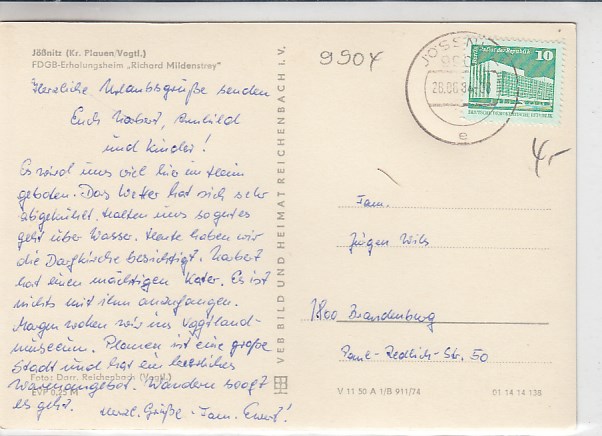 Jößnitz (Kr. Plauen/Vogtl.)
FDGB-Erholungsheim „Richard Mildenstrey"
Herzliche Urlaubsgrüße senden
Euch Norbert, Armhild
und Kinder!
Es wird uns viel hier im Heim
geboten. Das Wetter hat sich sehr
abgekühlt. Halten uns so gut es
geht über Wasser. Heute haben wir
die Dorfkirche besichtigt. Norbert
hat einen mächtigen Kater. Es ist
nichts mit ihm anzufangen.
Morgen wollen wir ins Vogtland-
museum. Plauen ist eine große
Stadt und hat ein herrliches
Warenangebot. Wandern so oft
es geht. Herzl. Grüße - Fam.
Foto: Darr, Reichenbach (Vogtl.)
EVP 0,25 M
VEB BILD UND HEIMAT REICHENBACH i. V.
9904
JÖSSNITZ
28.06.84
e
Berlin, Palast der Republik
10
DEUTSCHE DEMOKRATISCHE REPUBLIK
4,-
Fam.
Jürgen Wils
1800 Brandenburg
Paul-Redlich-Str. 50
V 11 50 A 1/B 911/74
01 14 14 138